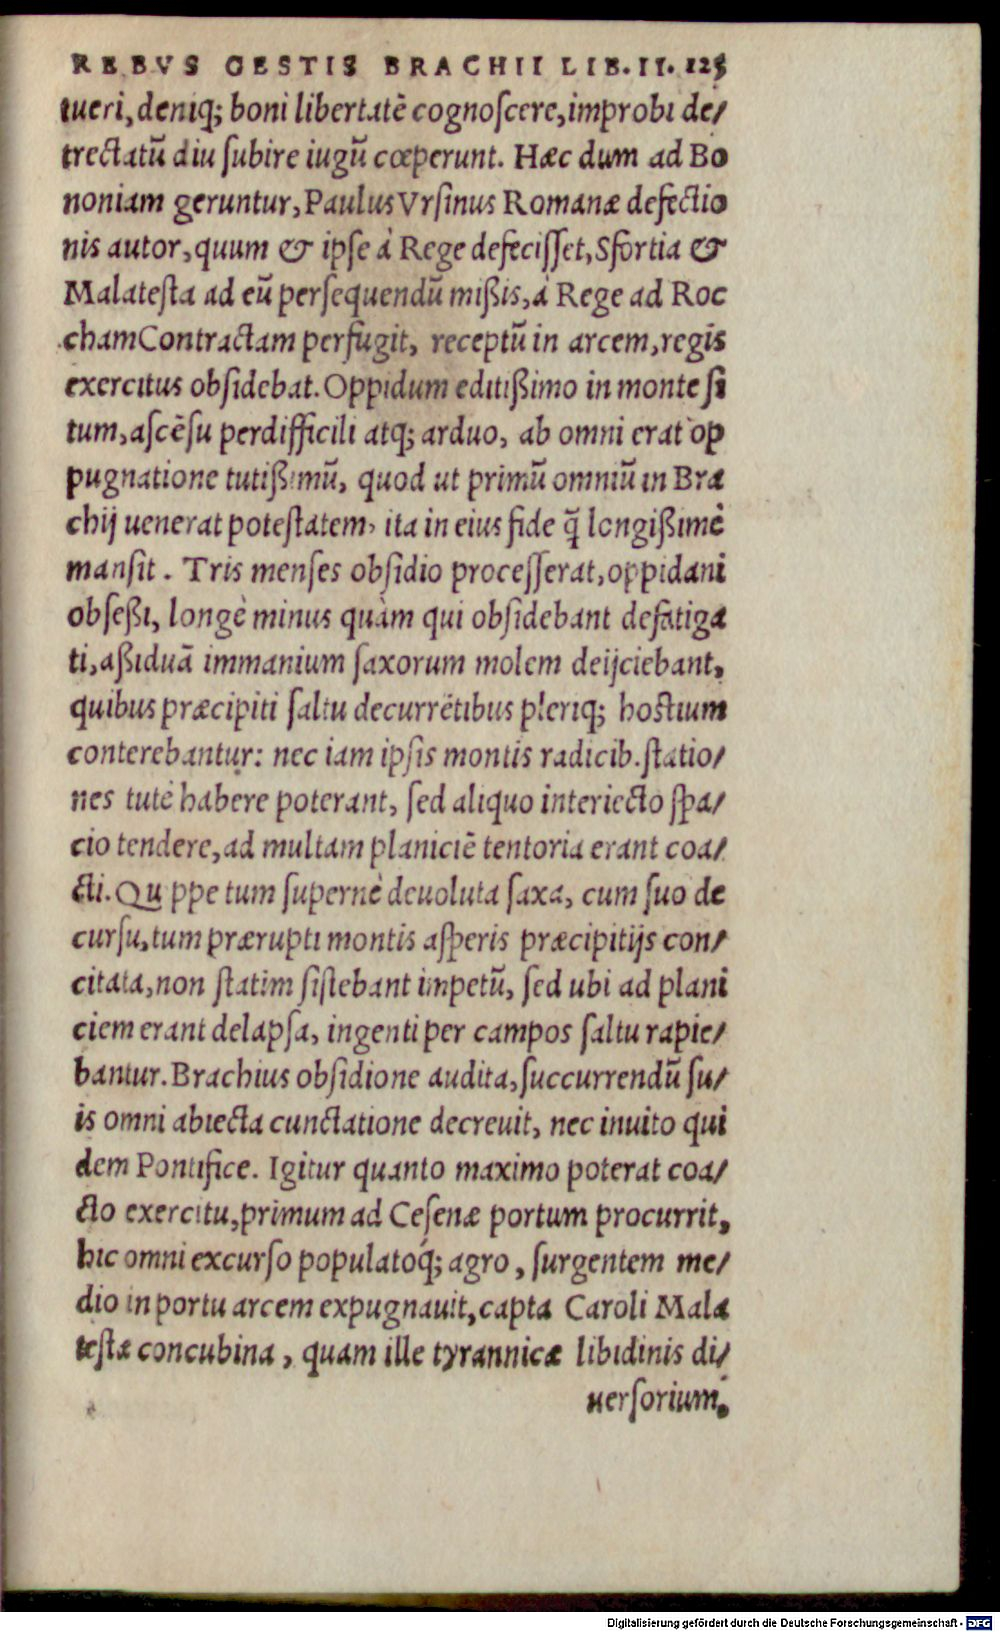 REBVS GESTIS BRACHII LIB. II. 125
tueri, deniq; boni libertatē cognoſcere, improbi de/
trectatū diu ſubire iugū cœperunt. Hæc dum ad Bo
noniam geruntur, Paulus Vrſinus Romanæ defectio
nis autor, quum & ipſe à Rege defeciſſet, Sfortia &
Malateſta ad eū perſequendū mißis, à Rege ad Roc
cham Contractam perfugit, receptū in arcem, regis
exercitus obſidebat. Oppidum editißimo in monte ſi
tum, aſcēſu perdifficili atq; arduo, ab omni erat op
pugnatione tutißimū, quod ut primū omniū in Bra
chij uenerat poteſtatem, ita in eius fide q̄ longißimè
manſit. Tris menſes obſidio proceſſerat, oppidani
obſeßi, longè minus quàm qui obſidebant defatiga
ti, aßiduā immanium ſaxorum molem deijciebant,
quibus præcipiti ſaltu decurrētibus pleriq; hostium
conterebantur: nec iam ipſis montis radicib. ſtatio/
nes tutè habere poterant, ſed aliquo interiecto ſpa/
cio tendere, ad multam planiciē tentoria erant coa/
cti. Qu ppe tum ſupernè deuoluta ſaxa, cum ſuo de
curſu, tum prærupti montis aſperis præcipitijs con/
citata, non ſtatim ſiſtebant impetū, ſed ubi ad plani
ciem erant delapſa, ingenti per campos ſaltu rapie/
bantur. Brachius obſidione audita, ſuccurrendū ſu/
is omni abiecta cunctatione decreuit, nec inuito qui
dem Pontifice. Igitur quanto maximo poterat coa/
cto exercitu, primum ad Ceſenæ portum procurrit,
hic omni excurſo populatoq́; agro, ſurgentem me/
dio in portu arcem expugnauit, capta Caroli Mala
teſtæ concubina, quam ille tyrannicæ libidinis di/
uerſorium,
Digitalisierung gefördert durch die Deutsche Forschungsgemeinschaft - DFG